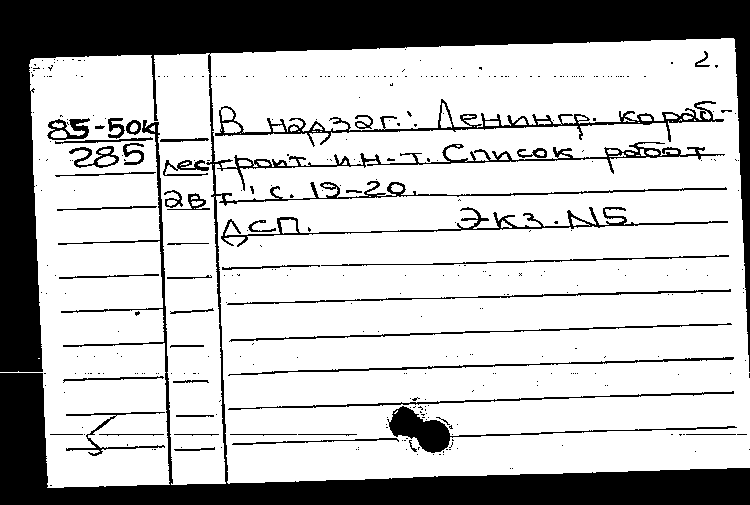 2.
85-50к
285
В надзаг.: Ленингр. кораб-
лестроит. ин-т. Список работ
авт.: с. 19-20.
ДСП. Экз. N5